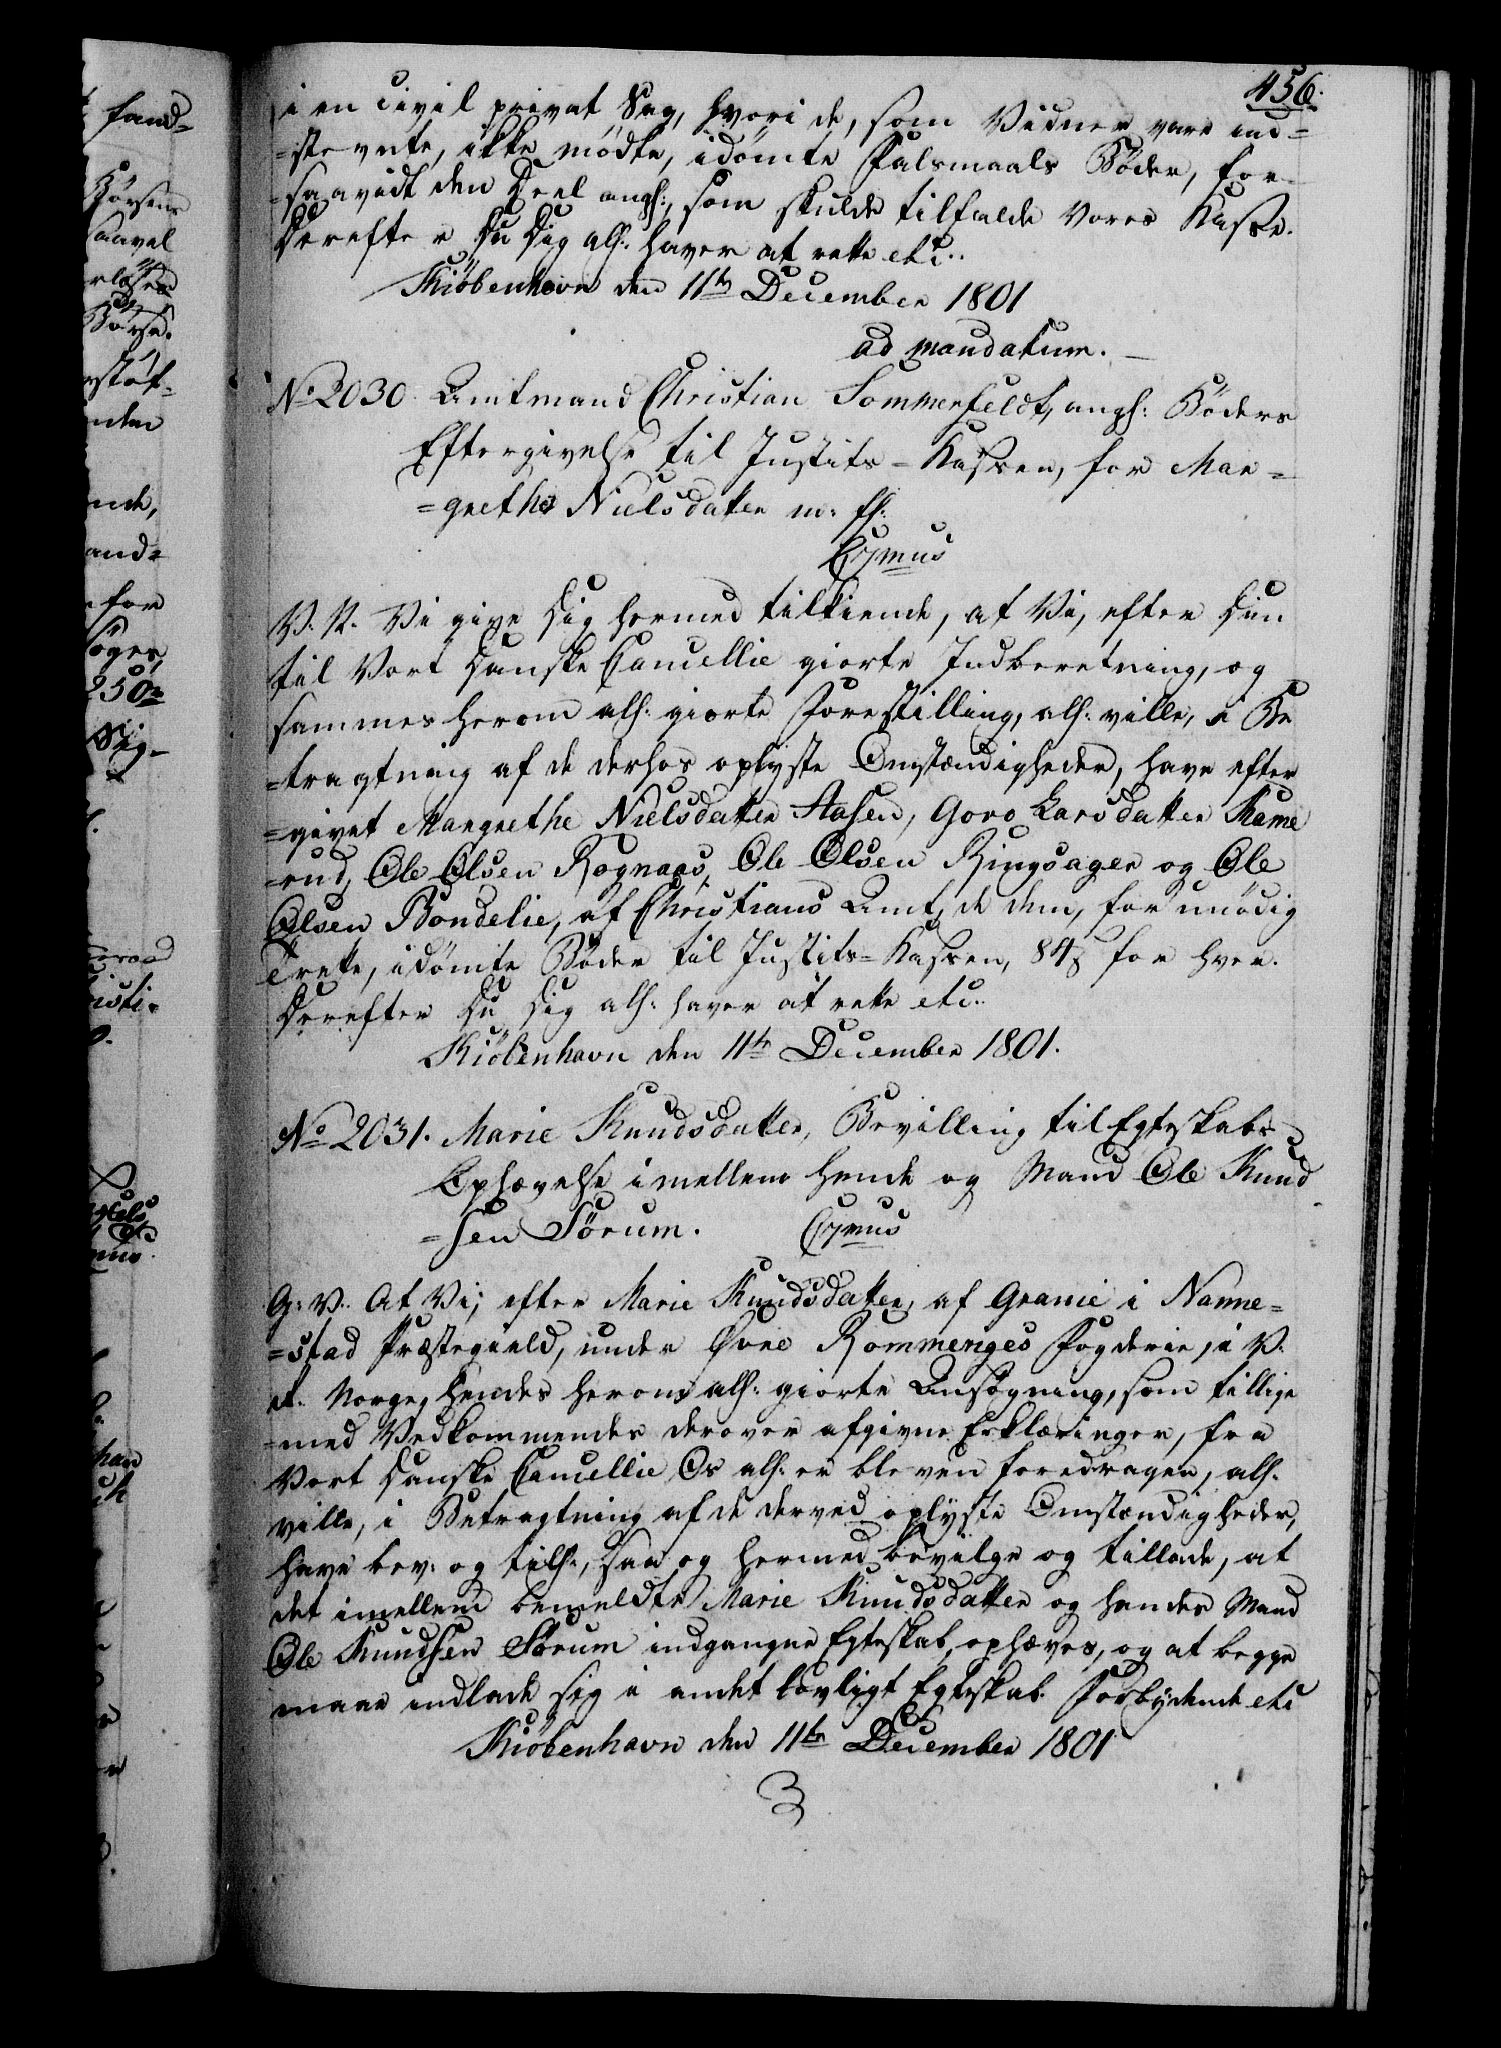 456.
i en Civil privat Sag, hvori de, som Vidner vare ind=
=stevnte, ikke mødte, idømte Falsmaals Bøder, for=
=saavidt den Deel angl:, som skulde tilfalde Vores Kasse.
Derefter Du Dig all: haver at rette etc..
Kiøbenhavn den 11te December 1801
ad mandatum. —
No 2030 Amtmand Christian Sommerfeldt, angl: Bøders
Eftergivelse til Justits=Kassen, for Mar=
=grethe Nielsdatter m: fl:
C7mus
V. N. Vi give Dig hermed tilkiende, at Vi, efter Din
til Vort Danske Cancellie giorte Indberetning, og
sammes herom all: giorte Forestilling, all: ville, i Be
=tragtning af de derhos oplyste Omstændigheder, have efter
=givet Margrethe Nielsdatter Aasen, Goro Larsdatter Kame
=rud, Ole Olsen Rognaas, Ole Olsen Ringsager og Ole
Olsen Bondelie, af Christians Amt, de dem, for unødig
Trette, idømte Bøder til Justits=Kassen, 84 ß for hver.
Derefter Du Dig all: haver at rette etc..
Kiøbenhavn den 11te December 1801.
No 2031. Marie Knudsdatter, Bevilling til Egteskabs
Ophævelse imellem hende og Mand Ole Knud
=sen Sørum. C7mus
G: V.. At Vi, efter Marie Knudsdatter, af Granie i Nanne=
=stad Præstegield, under Øvre Rommeriges Fogderie, i V.
R. Norge, hendes herom all: giorte Ansøgning, som tillige
=med Vedkommendes derover afgivne Erklæringer, fra
Vort Danske Cancellie Os all: er bleven foredragen, all:
ville, i Betragtning af de derved oplyste Omstændigheder,
have bev: og till:, saa og hermed bevilge og tillade, at
det imellem bemeldte Marie Knudsdatter og hendes Mand
Ole Knudsen Sørum indgangne Egteskab, ophæves, og at begge
maae indlade sig i andet lovligt Egteskab. Forbydende etc
Kiøbenhavn den 11te December 1801